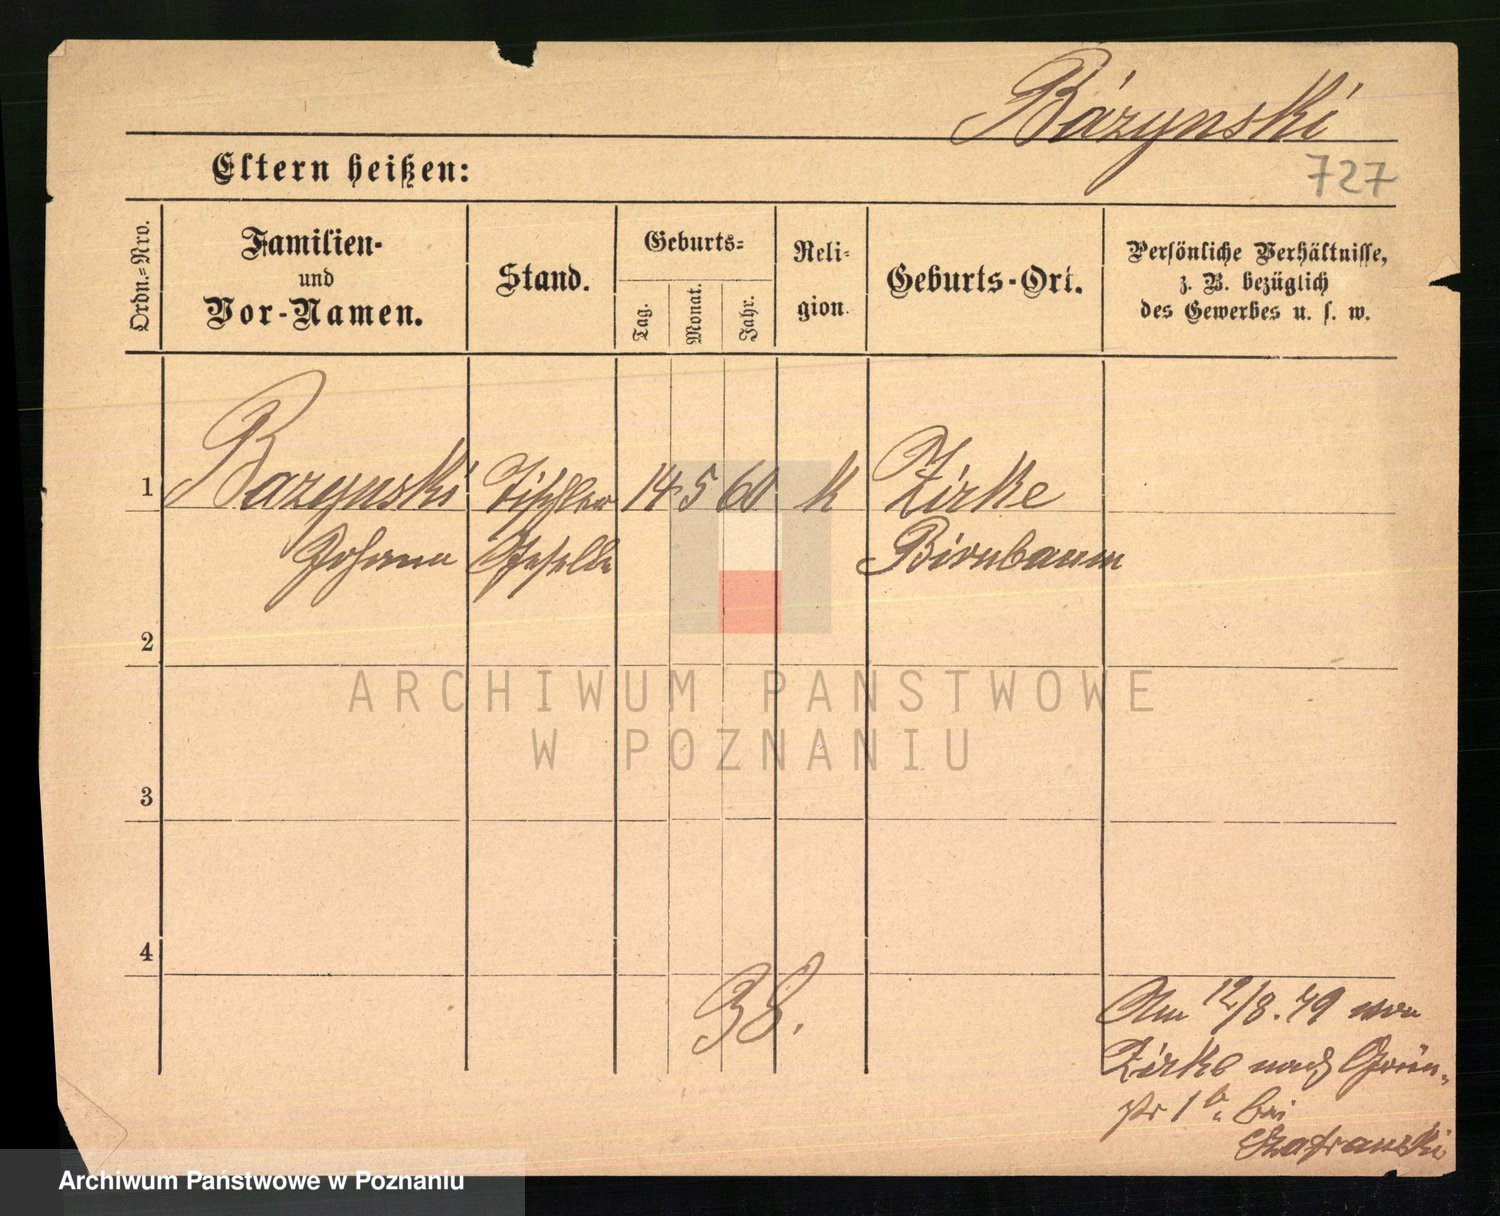 Bázynski
727
Eltern heißen:
Ordn.=Nro.
Familien-
und
Vor-Namen.
Stand.
Geburts=
Tag.
Monat.
Jahr.
Reli-
gion.
Geburts-Ort.
Persönliche Verhältnisse,
z. B. bezüglich
des Gewerbes u. s. w.
1 Bazynski Tischler 14 5 60 k Zirke
Johann Geselle Birnbaum
2
3
4
38.
Am 12/8. 79 von
Zirke nach Grün-
str 1 b. bei
Szafranski
ARCHIWUM PANSTWOWE
W POZNANIU
Archiwum Państwowe w Poznaniu